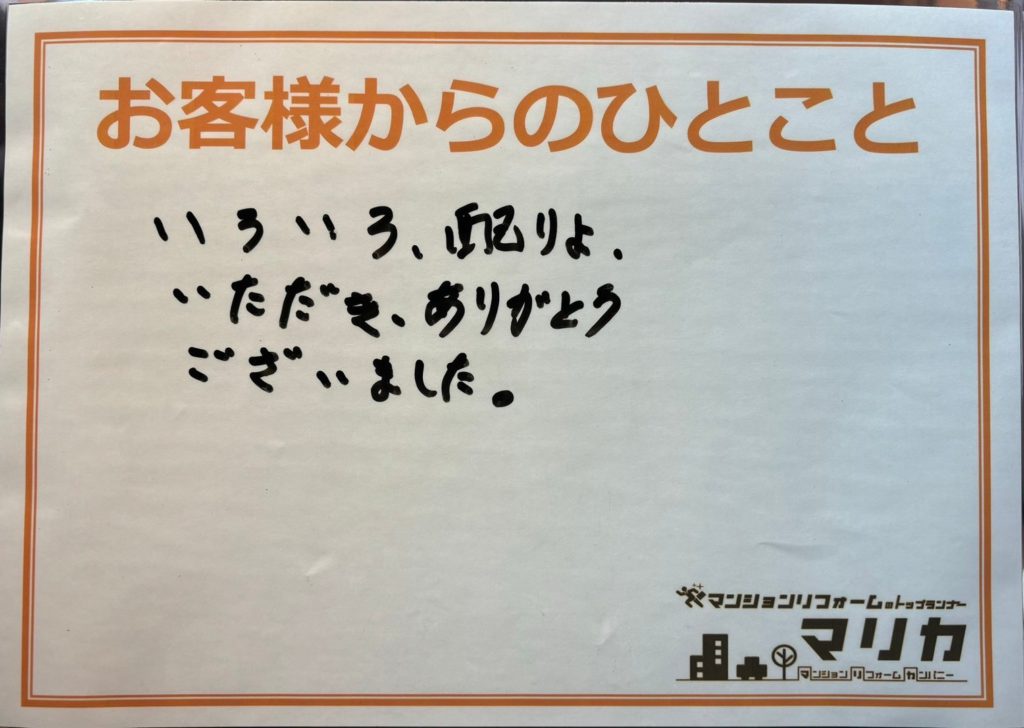 お客様からのひとこと
いろいろ、配りよ、
いただき、ありがとう
ございました。
マンションリフォームのトップランナー
マリカ
マンションリフォームカンパニー